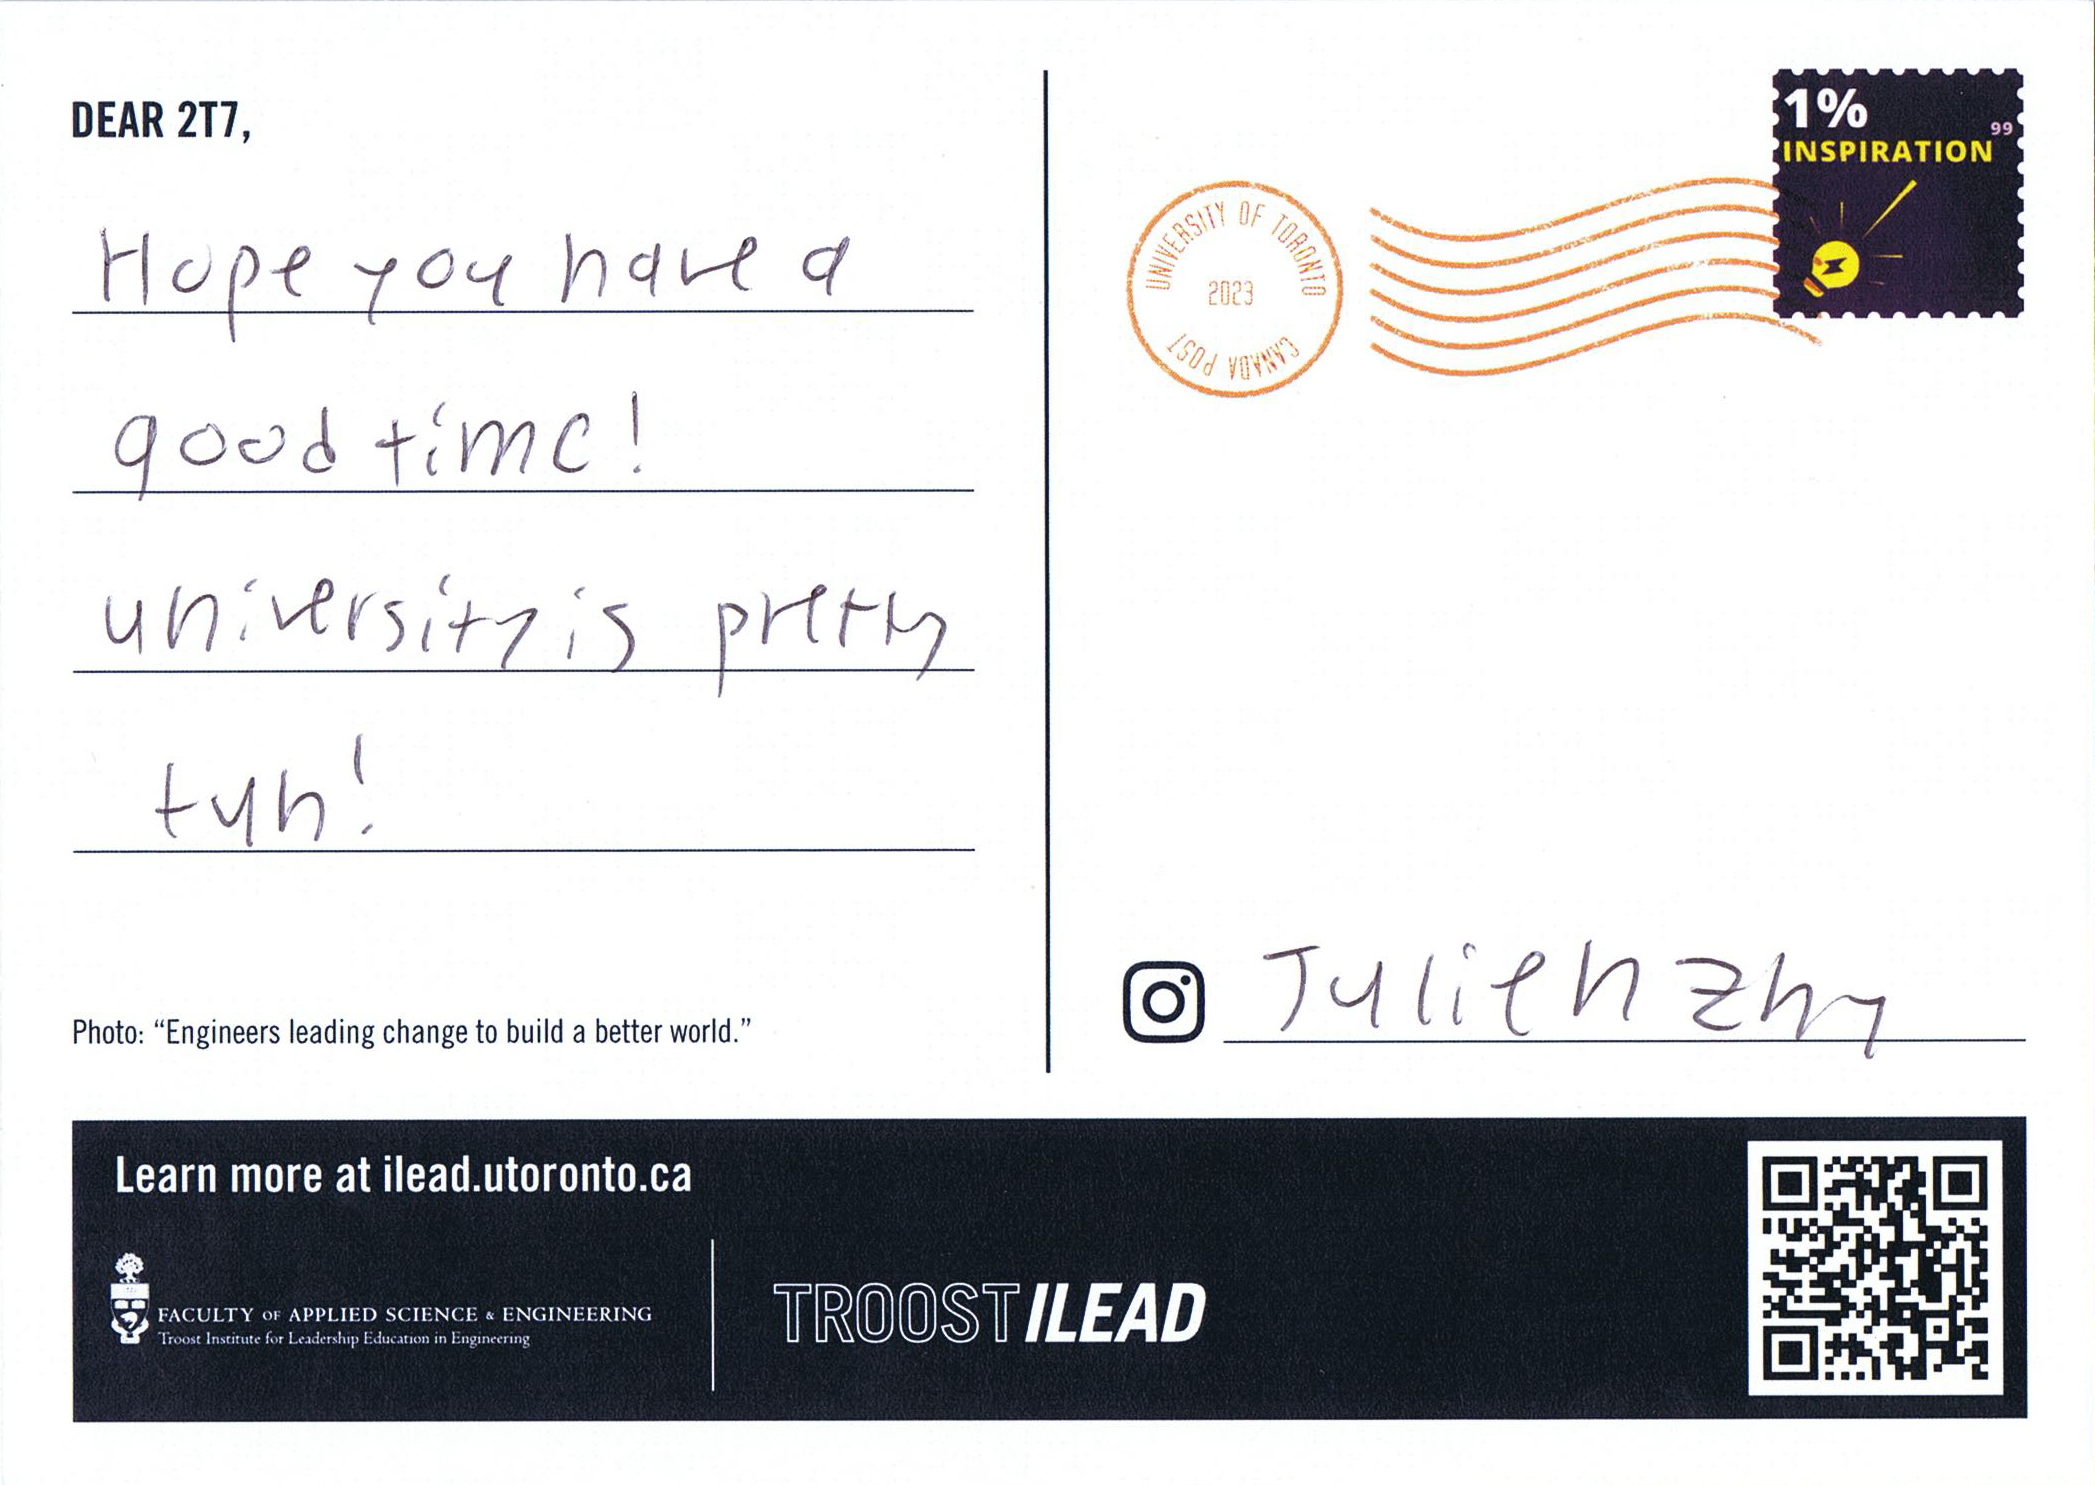 DEAR 2T7,
Hope you have a
good time!
university is pretty
fun!
Photo: “Engineers leading change to build a better world.”
1%
99
INSPIRATION
UNIVERSITY OF TORONTO
2023
CANADA POST
Julienzhy
Learn more at ilead.utoronto.ca
FACULTY OF APPLIED SCIENCE & ENGINEERING
Troost Institute for Leadership Education in Engineering
TROOST ILEAD